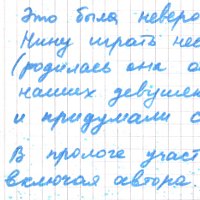 Это была неверо
Нину играть нес
(родилась она о
наших девушен
и придумали с
В прологе участ
включая автора.